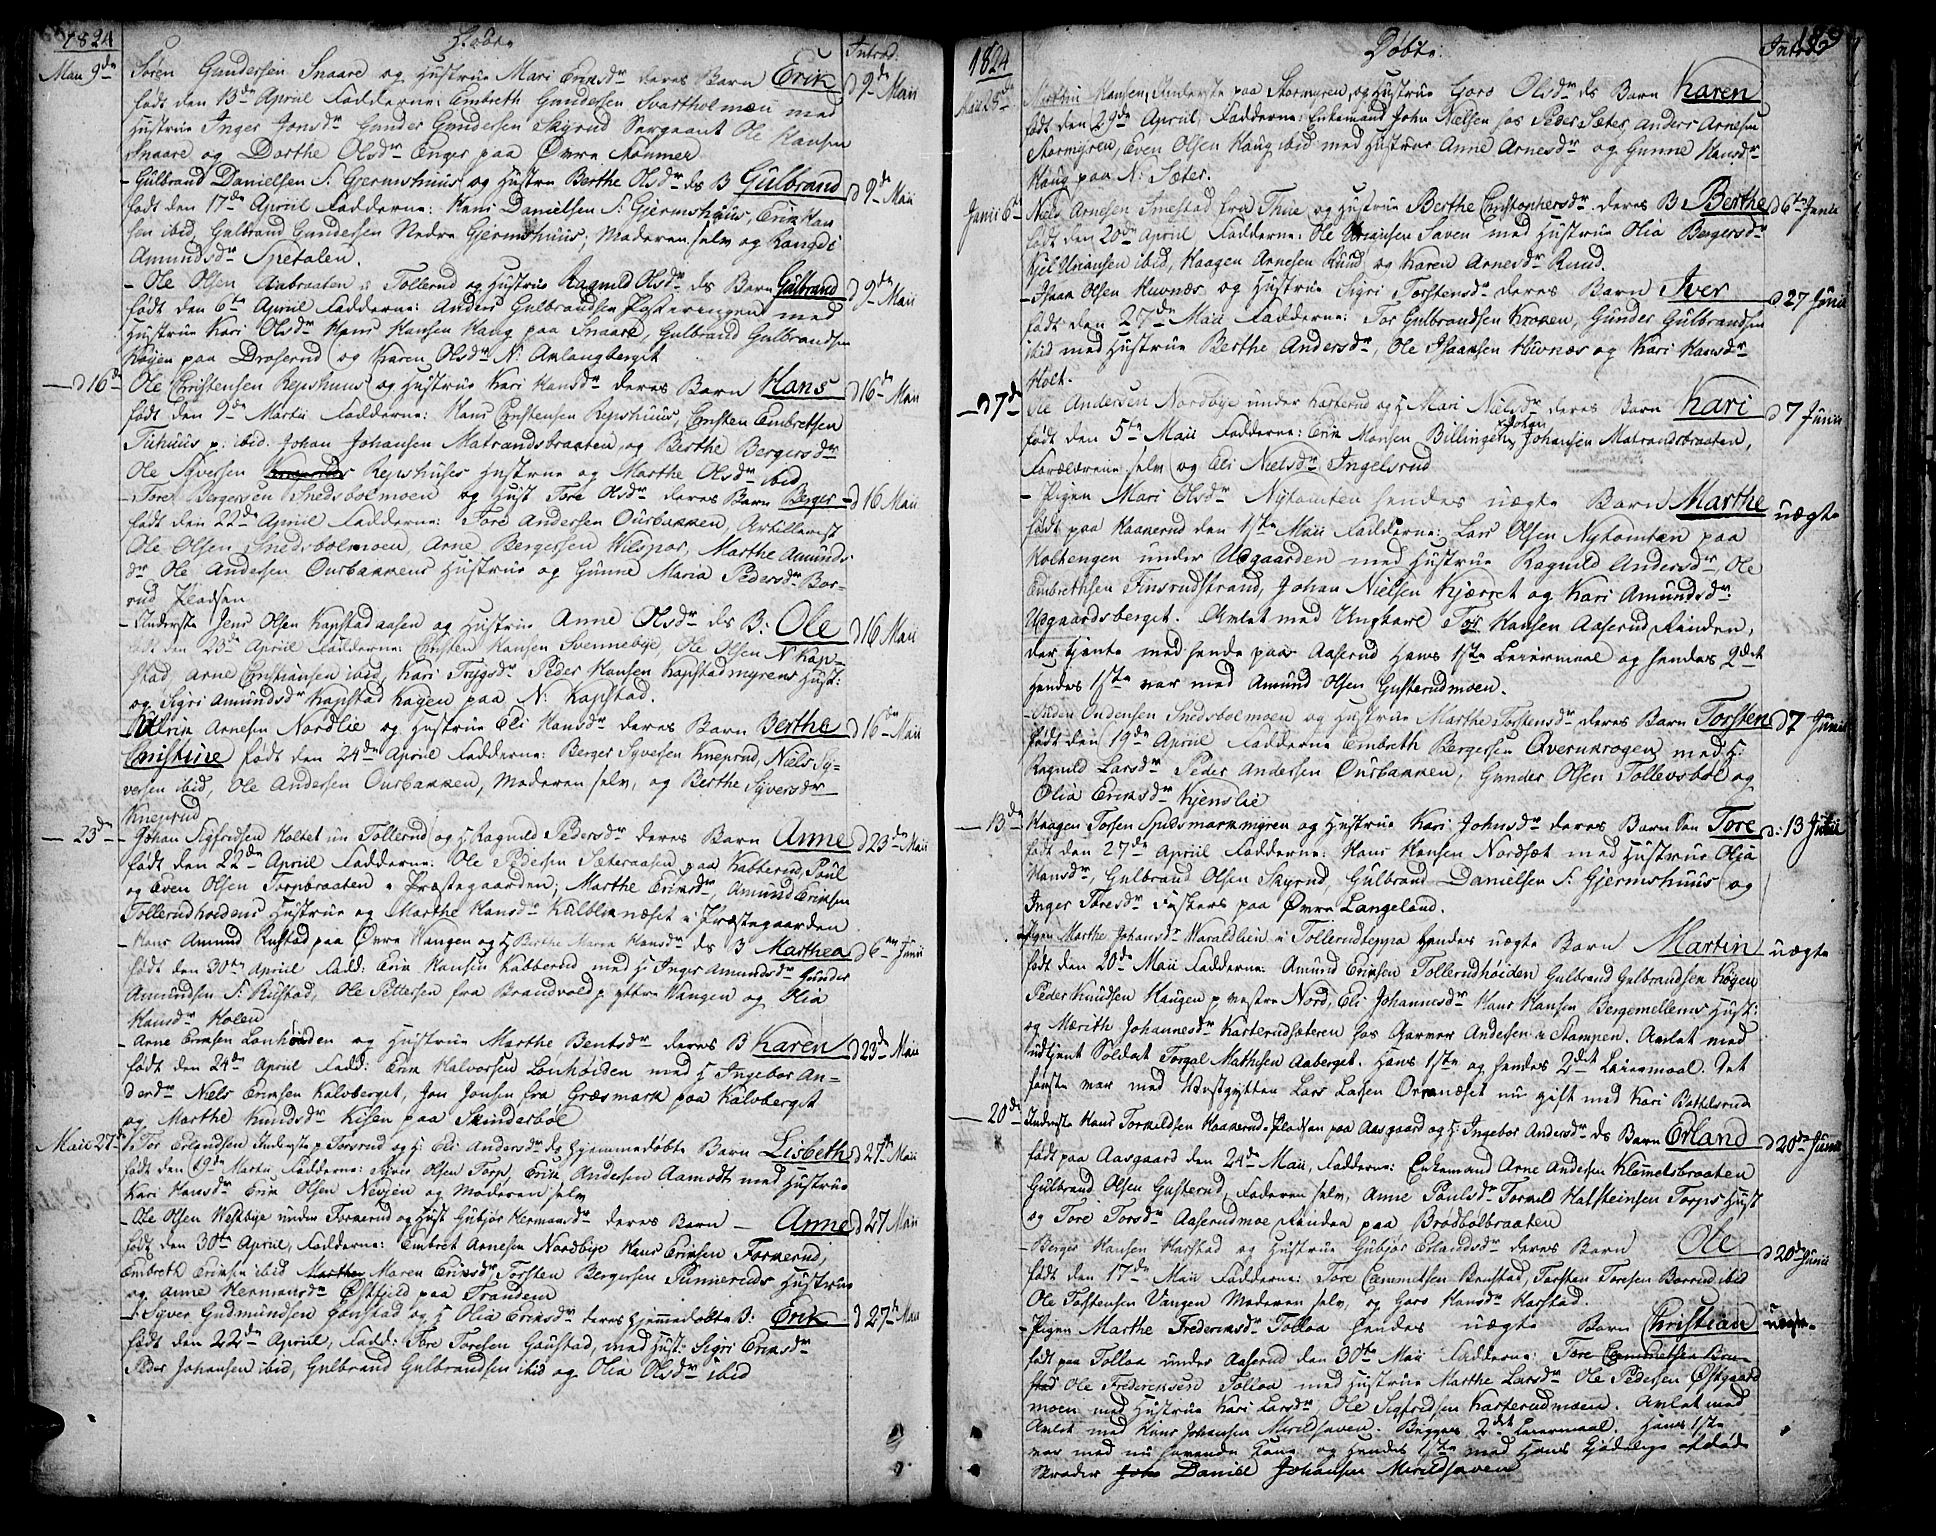 1824 Døbte Introd:
Maii 9de Sören Gundersen Snaare og Hustrue Mari Eriksdr deres Barn Erik d 9de Maii
født den 13de Apriil Fadderne: Embreth Gundersen Svartholmæn med
Hustrue Inger Jonsdr Gunder Gundersen Skyrud Sergeant Ole Hansen
Snaare og Dorthe Olsdr Enger paa Øvre Nommer
- Gulbrand Danielsen S: Gjermshuus og Hustru Berthe Olsdr ds B Gulbrand d 9de Maii
født den 17de Apriil Fadderne: Hans Danielsen S: Gjermshuus, Erik Han
sen ibid, Gulbrand Gundersen Nedre Gjermshuus; Moderen selv og Rangdi
Amundsdr Spetalen.
- Ole Olsen Anbraaten u: Tollerud og Hustrue Ragnild Olsdr ds Barn Gulbrand d 9de Maii
født den 6te Apriil Fadderne: Anders Gulbrandsen Posterengen med
Hustrue Kari Olsdr Hans Hansen Haug paa Snaare, Gulbrand Gulbrandsen
Køjen paa Droserud og Karen Olsdr N: Anlangberget
- d 16de Ole Christensen Repshuus og Hustrue Kari Hansdr deres Barn Hans d 16de Maii
født den 9de Martii Fadderne: Hans Christensen Repshuus, Christen Embretsen
Tukuus p: ibid. Johan Johansen Matrandsbraaten og Berthe Bergersdr
Ole Syversen Repshuses Hustrue og Marthe Olsdr ibid
- Tore Bergersen Snedsbolmoen og Hust Tore Olsdr deres Barn Berger d 16 Maii
født den 22de Apriil Fadderne: Tore Andersen Oursbakken, Artillerist
Ole Olsen Snedsbolmoen, Arne Bergersen Vilspor, Marthe Amunds
dr Ole Andersen Oursbakkens Hustrue og Gunne Maria Pedersdr Bor-
rud Pladsen
- Inderste Jens Olsen Kapstadaasen og Hustrue Anne Olsdr ds B: Ole d 16 Maii
født den 23de Apriil Fadderne: Christen Hansen Svennebye, Ole Olsen N Kap-
stad, Arne Christiansen ibid, Kari Trygsdr Peder Hansen Kapstadmyrens Hust:
og Sigri Amundsdr Kapstad Hagen paa N: Kapstad.
Arnesen Nordlie og Hustrue Eli Hansdr deres Barn Berthe d 16de Maii
Christine født den 24de Apriil Fadderne: Berger Syversen Kneprud, Niels Sy-
versen ibid, Ole Andersen Oursbakken, Moderen selv, og Berthe Syversdr
Kneprud
- 23de - Johan Sigfridsen Holtet un Tollerud og H Ragnild Pedersdr deres Barn Anne d 23de Maii
født den 22de Apriil Fadderne: Ole Pedersen Sæteraasen paa Kabberud, Poul
og Even Olsen Torpbraaten u Præstegaarden; Marthe Eriksdr Amund Eriksen
Tollerudhoidens Hustrue og Marthe Hansdr Kalblknæset u Præstegaarden
- Hans Amund Rustad paa Øvre Vangen og H Berthe Maria Hansdr ds B Marthea d 6te Junii
født den 30te Apriil Fadd: Erik Hansen Kabberud med H Inger Amundsdr Gunder
Amundsen S: Rustad, Ole Pettersen fra Brandvold p yttre Vangen og Olia
Hansdr Holen
- Arne Eriksen Lonhöiden og Hustrue Marthe Bentsdr deres B Karen d 23de Maii
født den 24de April Fadd: Erik Halvorsen Lonhöiden med H Ingebor An-
dersdr Niels Eriksen Kalvberget, Jon Jonsen fra Græsmark paa Kalvberget
og Marthe Knudsdr Kisen paa Skinderböl
Maii 27de Tor Erlandsen Inderste p Torsrud og H: Eli Andersdr ds hjemmedøbte Barn Lisbeth d 27de Maii
født den 19de Martii Fadderne: Syver Olsen Torp, Erik Andersen Aamodt med Hustrue
Kari Hansdr Erik Olsen Nevjen og Moderen selv
- Ole Olsen Westbye under Fornerud og Hust Gubjør Hermansdr deres Barn - Anne d 27 Maii
født den 30te Apriil, Fadderne: Embret Arnesen Nordbye Hans Eriksen Fornerud,
Embreth Eriksen ibid Maren Eriksdr Torsten Bergersen Punneruds Hustrue
og Anne Hermansdr Østfjeld paa Trandem
- Syver Gudmundsen Gaustad og H Olia Eriksdr deres hjemmedøbte B: Erik d 27de Maii
født den 22de Apriil, Fadd: Tore Toresen Gaustad, med Hust: Sigri Eriksdr
Peder Johansen ibid, Gulbrand Gulbrandsen ibid og Olia Olsdr ibid
1824 Døbte: Introd: 189
Maii 28de Hansen, Inderste paa Stormyren, og Hustrue Goro Olsdr ds Barn Karen
født den 29de Apriil Fadderne: Enkemand John Nielsen hos Peder Sæter, Anders Arnesen
Stormyren, Even Olsen Haug ibid med Hustrue Anne Arnesdr og Gunne Hansdr
Haug paa N: Sæter.
Junii 6te Niels Arnesen Smestad fra Thue og Hustrue Berthe Christophersdr deres B Berthe d 6te Junii
født den 20de Apriil Fadderne: Ole Uriansen Saven med Hustrue Olia Bergersdr
Kjel Uriansen ibid, Haagen Arnesen Ruud og Karen Arnesdr Ruud.
- Isaac Olsen Huvnæs og Hustrue Sigri Torstensdr deres Barn Iver d 27 Junii
født den 27de Maii Fadderne: Tor Gulbrandsen Kroken, Gunder Gulbrandsen
ibid med Hustrue Berthe Andersdr, Ole Isaacsen Huvnæs og Kari Hansdr
Holt.
- d 7de Ole Andersen Nordbye under Kasterud og H Mari Nielsdr deres Barn Kari d 7 Junii
født den 5te Maii Fadderne: Erik Monsen Billingen, Johan Johansen Matrandsbraaten,
Forældrene selv og Eli Nielsdr Ingelsrud
- Pigen Mari Olsdr Nytomten hendes uægte Barn Marthe uægte
født paa Haanerud den 1ste Maii Fadderne: Lars Olsen Nytomten paa
Holtengen under Udgaarden med Hustrue Ragnild Andersdr Ole
Embrethsen Finsrudstrand, Johan Nielsen Kjærret og Kari Amundsdr
Udgaardsberget. Avlet med Ungkarl Tor Hansen Aaserud Rinden,
der tjente med hende paa Aaserud Hans 1ste Leiermaal og hendes 2det
hendes 1ste var med Amund Olsen Gusterudmoen.
- Ondensen Snedsbolmoen og Hustrue Marthe Torstensdr deres Barn Torsten d 7 Junii
født den 19de Apriil Fadderne Embreth Bergersen Overnkrogen med H:
Ragnild Larsdr Peder Andersen Oursbakken, Gunder Olsen Tollevsböl og
Olia Eriksdr Kjenslie
- 13de Haagen Torsen Spelsmarkmyren og Hustrue Kari Johnsdr deres Barn Søn Tore d: 13 Junii
født den 27de Apriil Fadderne: Hans Hansen Nordsæt med Hustrue Olia
Hansdr, Gulbrand Olsen Skyrud, Gulbrand Danielsen S: Gjermshuus og
Inger Toresdr Fosters paa Øvre Langeland.
Pigen Marthe Johansdr Waraldlien u: Tollerudteppa hendes uægte Barn Martin uægte
født den 20de Maii Fadderne: Amund Eriksen Tollerudhöiden Gulbrand Gulbrandsen Køgen
Peder Knudsen Haugen p vestre Nord, Eli Johannesdr Hans Hansen Bergemellems Hust:
og Merith Johannesdr Kasterudseteren hos Garver Andersen u Stampen. Avlet med
udtjent Soldat Torgal Mathisen Aaberget. Hans 1ste og hendes 2det Leiermaal. Det
første var med Westgytten Lars Larsen Orrenæset nu gift med Kari Bottelsrud
- 20de Inderste Hans Torkildsen Haanerud-Pladsen paa Aasgaard og H: Ingebor Andersdr ds Barn Erland d 20de Junii
født paa Aasgaard den 24de Maii, Fadderne: Enkemand Arne Andersen Klemetsbraaten
Gulbrand Olsen Gusterud, Faderen selv, Anne Paulsdr Tormod Halsteinsen Torps Hust
og Tore Torsdr Aaserudmoe Rinden paa Brødbölbraaten
- Berger Hansen Harstad og Hustrue Gubjør Erlandsdr deres Barn Ole d 20de Junii
født den 17de Maii Fadderne: Tore Emmetsen Brustad, Torsten Toresen Borrud ibid
Ole Torstensen Vangen Moderen selv, og Goro Hansdr Harstad.
- Pigen Marthe Frederiksdr Tolloa hendes uægte Barn Christian uægte
født paa Tolloa under Aaserud den 30te Maii Fadderne: Tore Emmetsen Bru-
stad Ole Frederiksen Tolloa med Hustrue Marthe Larsdr Ole Pedersen Østgaard
moen med Hustrue Kari Larsdr, Ole Sigfridsen Kasterudmoen. Avlet med
Avlet med Hans Johansen Mirildsaven. Begges 2det Leiermaal. Hans 1ste
var med nu havende Kone, og hendes 1ste med Hans Kjødelige afdøde
Skræder Joh Daniel Johansen Mirildsaven